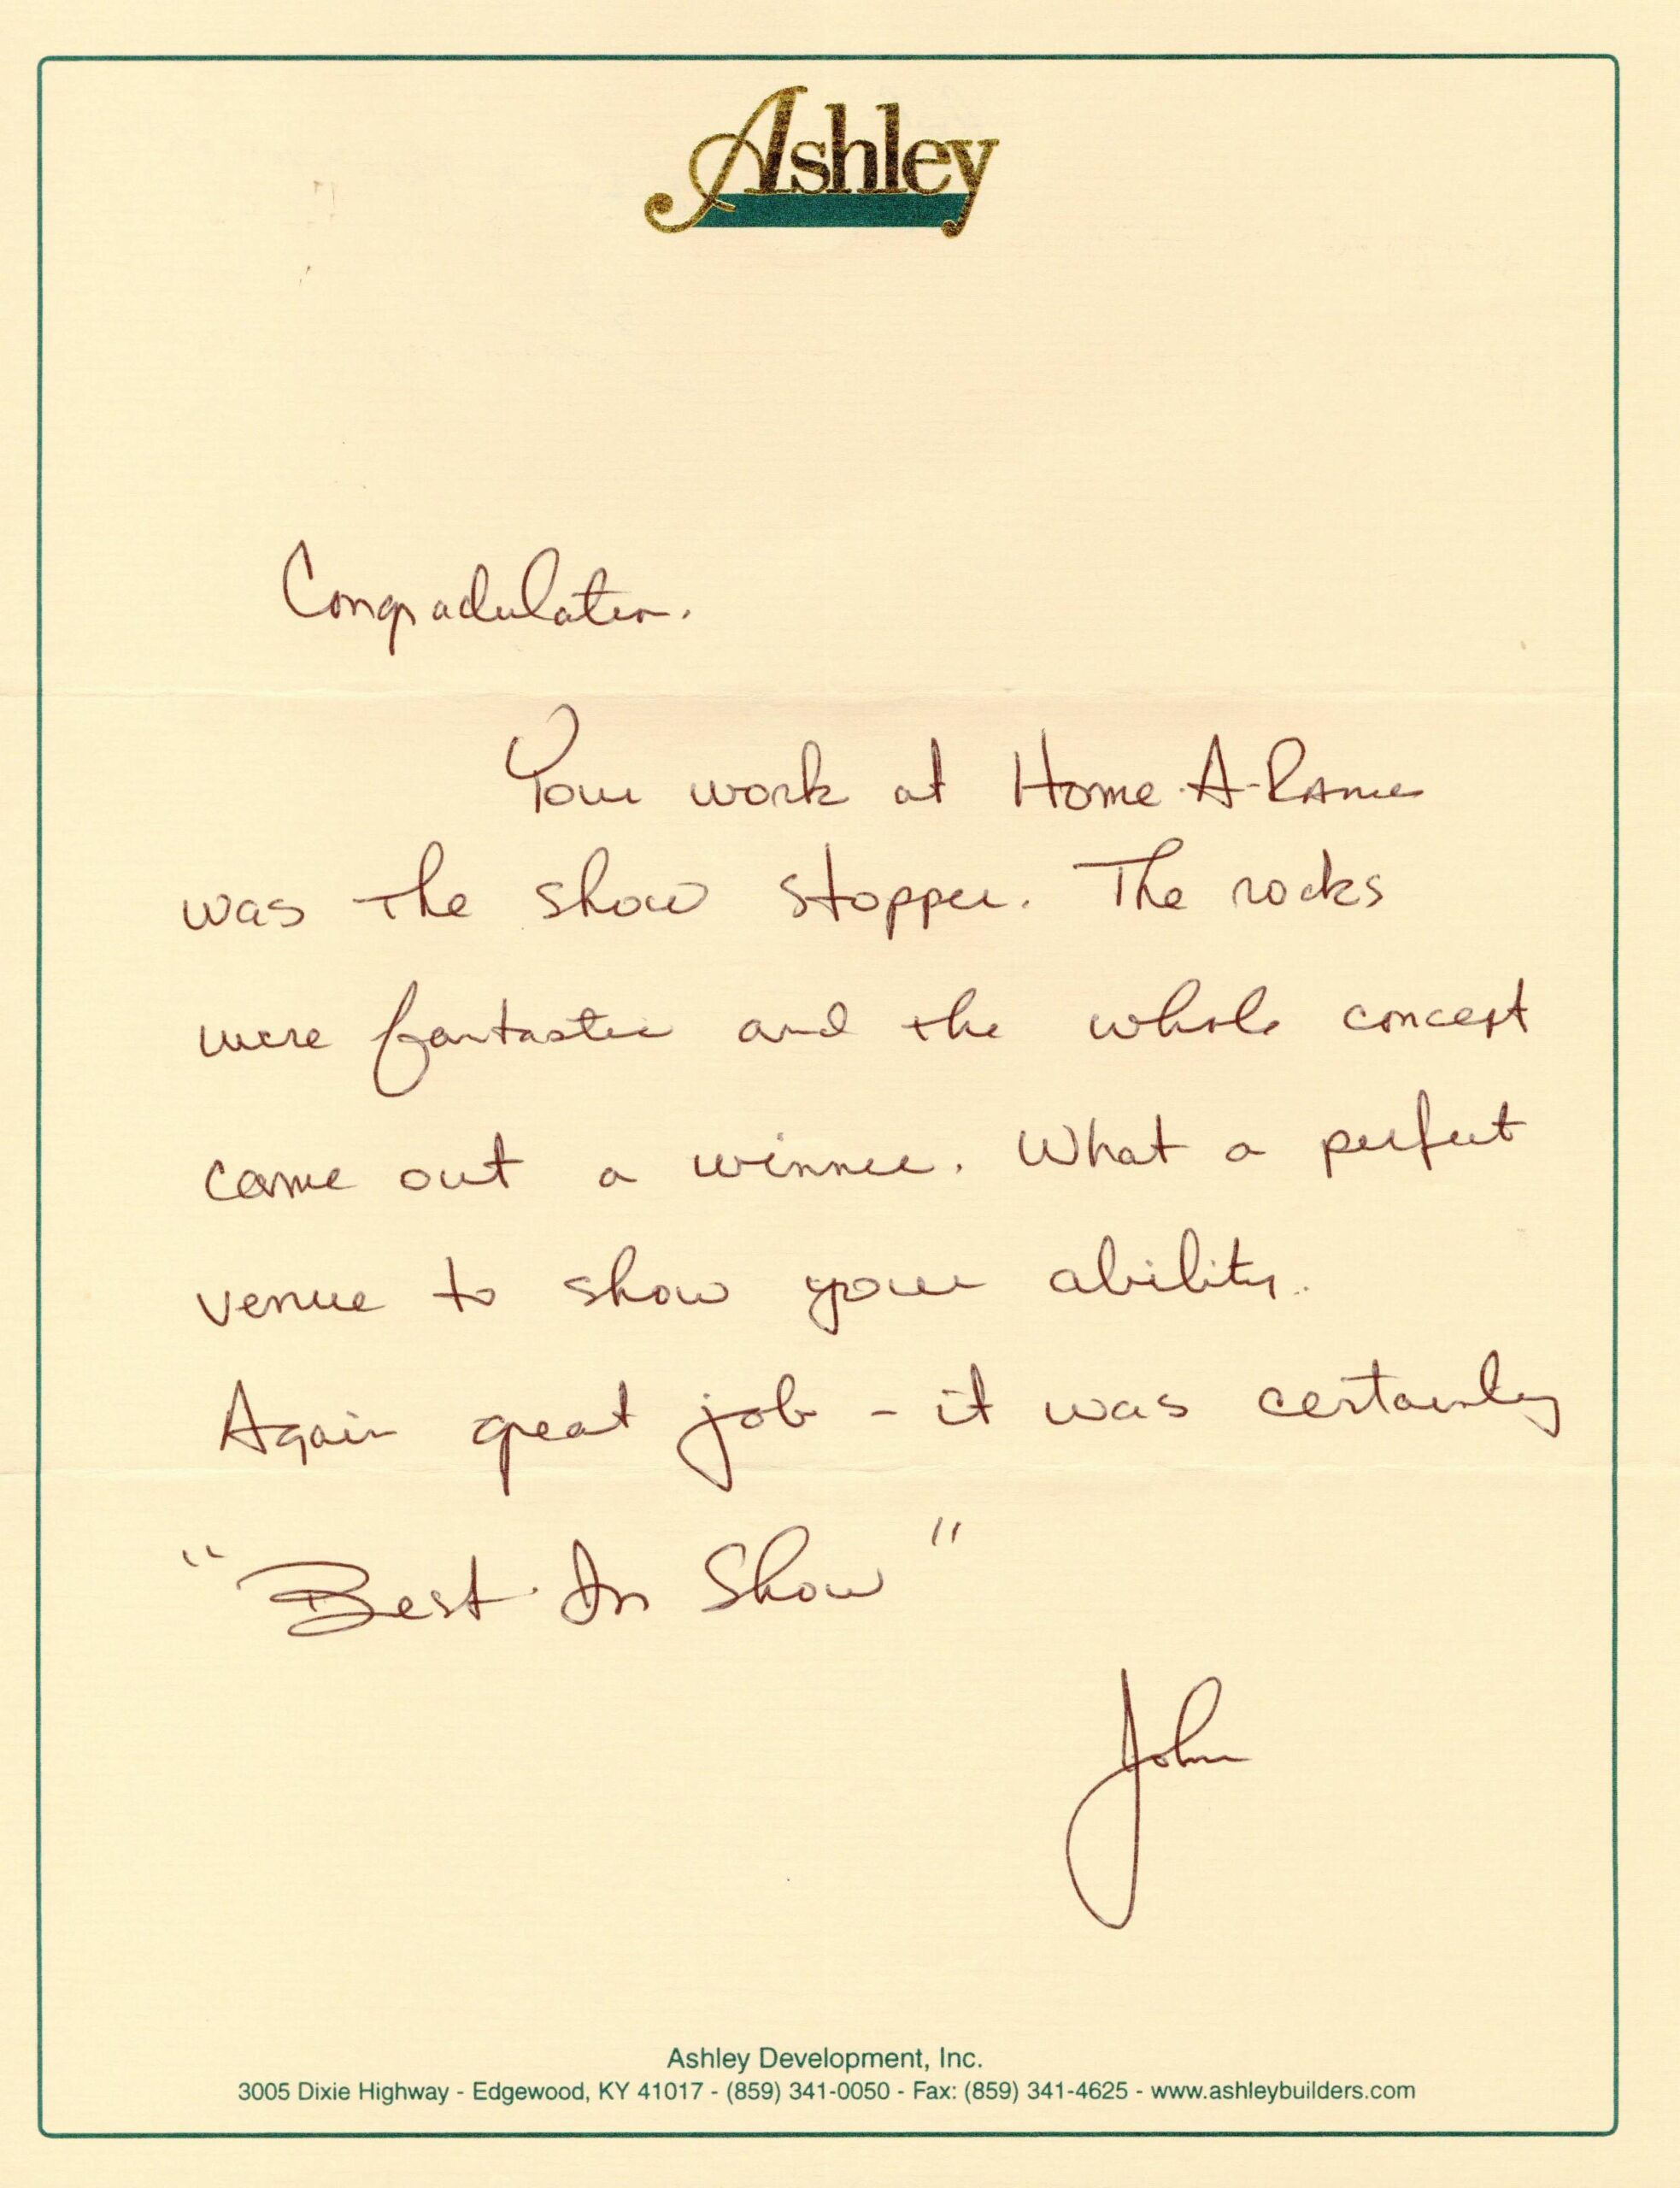 Ashley
Congradulation.
Your work at Home-A-Rama
was the show stopper. The rocks
were fantastic and the whole concept
came out a winner. What a perfect
venue to show your ability.
Again great job - it was certainly
"Best In Show"
John
Ashley Development, Inc.
3005 Dixie Highway - Edgewood, KY 41017 - (859) 341-0050 - Fax: (859) 341-4625 - www.ashleybuilders.com